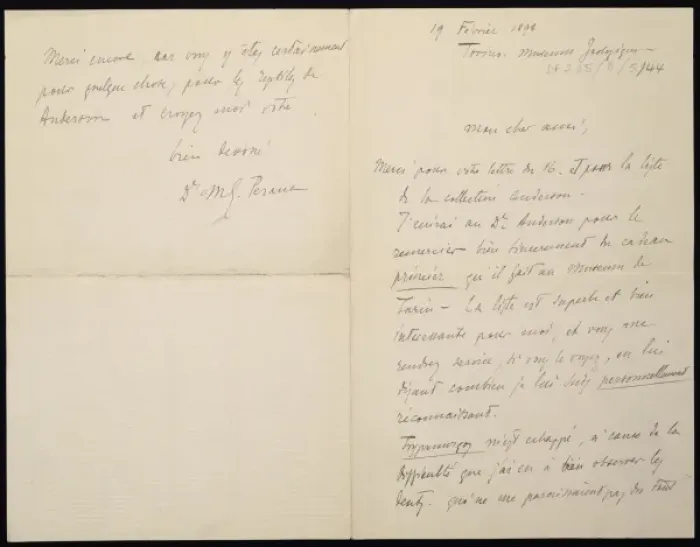 19 Février 1898
Torino. Museum Zoologique
DF 345/8/5/44
Mon cher ami,
Merci pour votre lettre du 16. et pour la liste
de la collection Anderson.
J'écrirai au Dr. Anderson pour le
remercier bien sincèrement du cadeau
précieux qu'il fait au Museum de
Turin - La liste est superbe et bien
interessante pour moi, et vous me
rendrez service, si vous le voyez, en lui
disant combien je lui suis personnellement
reconnaissant.
m'est echappé, à cause de la
difficulté que j'ai eu à bien observer les
dents. qui ne me paraissaient pas du tout
Merci encore, car vous y êtes certainement
pour quelque chose, pour les reptiles de
Anderson et croyez moi votre
bien devoué
Dr. M. G. Peracca